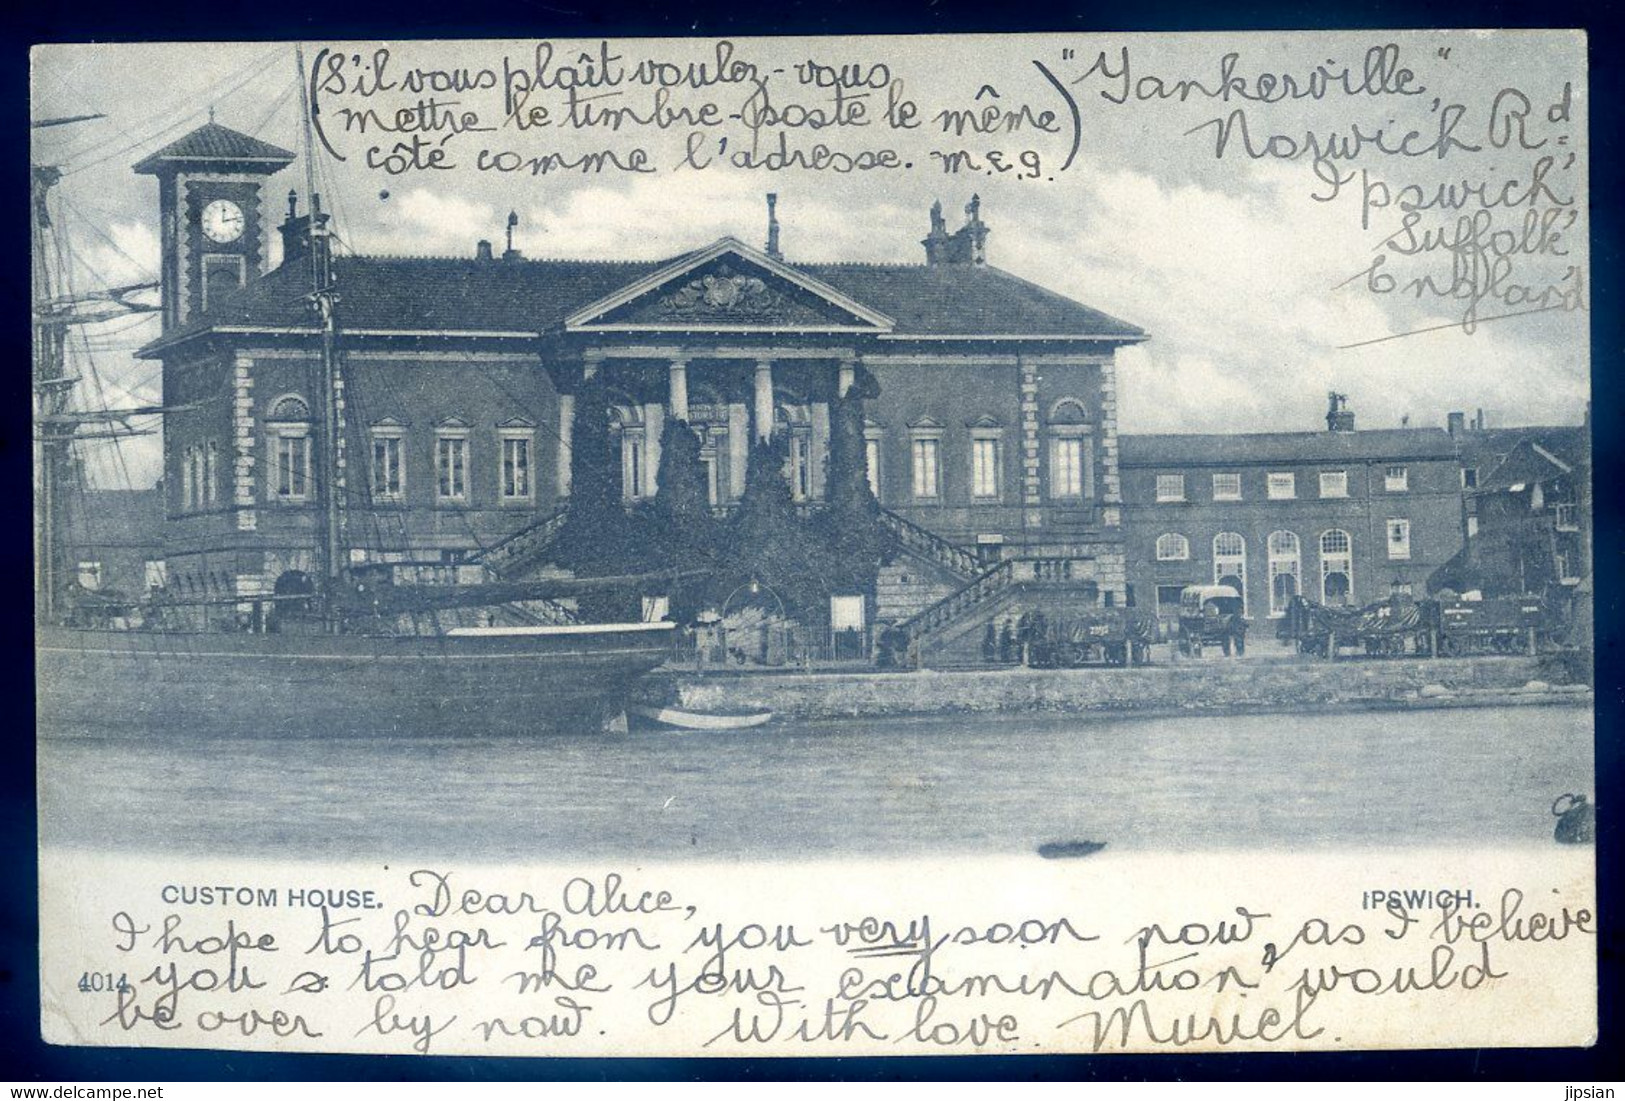 (S'il vous plaît voulez-vous
mettre le timbre-poste le même
côté comme l'adresse. M.E.G.)
"Yankerville,"
Norwich Rd,
Ipswich,
Suffolk
England
CUSTOM HOUSE.
IPSWICH.
Dear Alice,
I hope to hear from you very soon now, as I believe
4014
you told me your examination would
be over by now. With love. Muriel.
jipsian